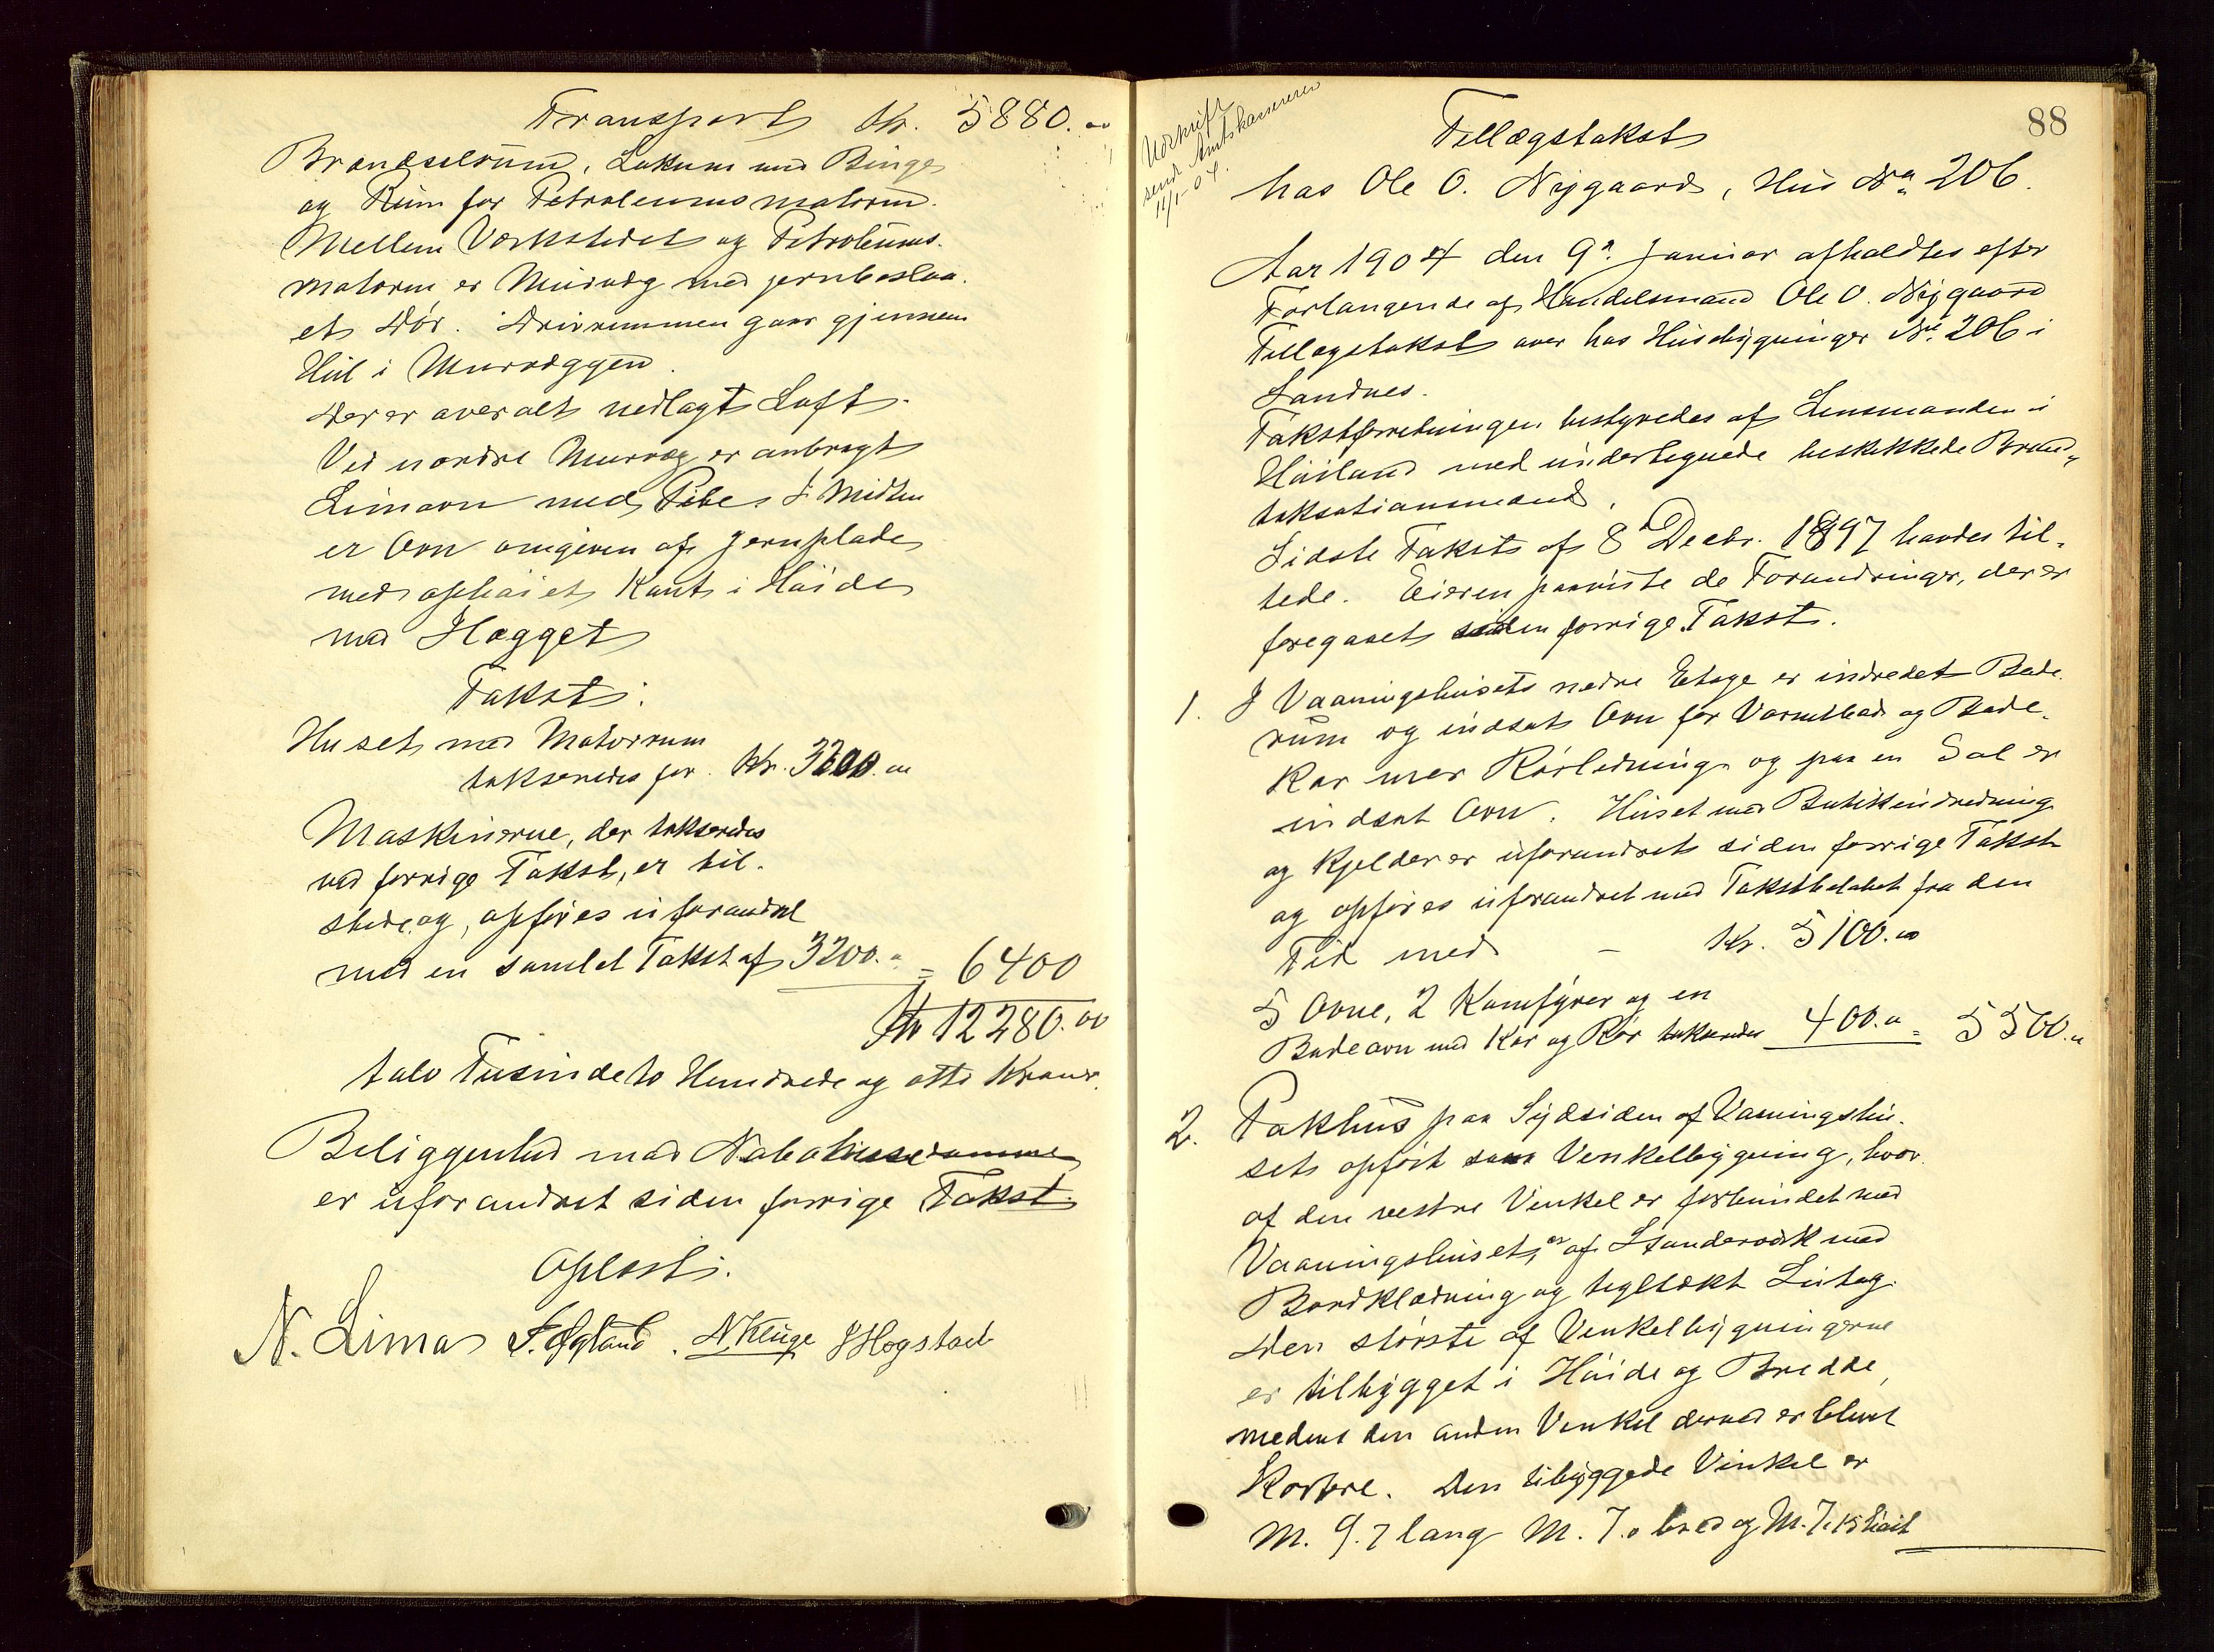 Transport Kr. 5880.00
Brændselrum, Lokum med Binge
og Rum for Petroleumsmotoren.
Mellem Værkstedet og Petroleums-
motoren er Murvæg med jernbeslaa-
et Dör. Drivremmen gaar gjennem
Hul i Murvæggen.
Der er overalt nedlagt Loft.
Ved nordre Murvæg er anbragt
Limovn med Pibe. I Midten
er Ovn omgiven af Jernplade
med ophöiet Kant i Höide
med
Takst:
Huset med Motorrum
takseredes for Kr. 3200.00
Maskinerne, der takseredes
ved forrige Takst, er til-
stede og, opföres uforandret
med en samlet Takst af 3200.00 = 6400
Kr 12280.00
tolv Tusinde to Hundrede og otti Kroner.
Beliggenhed med Nabohusene
er uforandret siden forrige Takst.
Oplæst:
N. Lima F. Øgland. N. Kluge J Hogstad
88
Udskrift
sendt Amtskassereren
11/1-04.
Tillægstakst
hos Ole O. Nygaard, Hus No 206.
Aar 1904 den 9de Januar afholdtes efter
Forlangende af Handelsmand Ole O. Nygaard
Tillægstakst over hos Husbygninger No. 206 i
Sandnes.
Takstforretningen bestyredes af Lensmanden i
Höiland med undertegnede beskikkede Brand-
taksationsmænd.
Sidste Takst af 8de Decbr. 1897 havdes til-
stede. Eieren paaviste de Forandringer, der er
foregaaet siden forrige Takst.
1. I Vaaningshusets nedre Etage er indredet Bade-
rum og indsat Ovn for Varmtbad og Bade-
kar med Rörledning og paa en Sal er
indsat Ovn. Huset med Butikindredning
og Kjelder er uforandret siden forrige Takst
og opföres uforandret med Takstbelöbet fra den
Tid med - Kr. 5100.00
5 Ovne, 2 Komfyrer og en
Badeovn med Kar og Rör takseredes 400.00 = 5500.00
2. Pakhus paa Sydsiden af Vaaningshu-
sets opfört som Venkelbygning, hvor-
af den vestre Vinkel er forbundet med
Vaaningshuset, er af Stenderværk med
Bordklædning og tegltækt Sutag.
Den störste af Venkelbygningerne
er tilbygget i Höide og Bredde,
medens den anden Venkel derved er blevet
Kortere. Den tilbyggede Vinkel er
M. 9.7 lang M. 7.0 bred og M. 7.15 höit